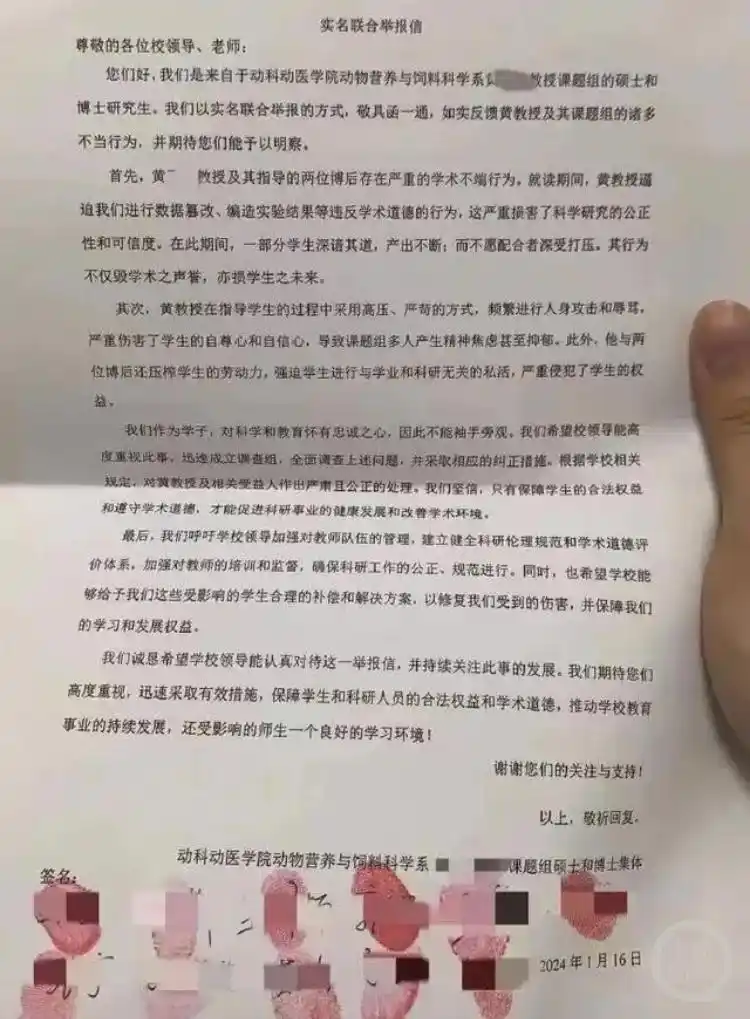 实名联合举报信
尊敬的各位校领导、老师：
您们好，我们是来自于动科动医学院动物营养与饲料科学系黄 教授课题组的硕士和
博士研究生。我们以实名联合举报的方式，敬具函一通，如实反馈黄教授及其课题组的诸多
不当行为，并期待您们能予以明察。
首先，黄 教授及其指导的两位博后存在严重的学术不端行为。就读期间，黄教授逼
迫我们进行数据篡改、编造实验结果等违反学术道德的行为，这严重损害了科学研究的公正
性和可信度。在此期间，一部分学生深谙其道，产出不断；而不愿配合者深受打压。其行为
不仅毁学术之声誉，亦损学生之未来。
其次，黄教授在指导学生的过程中采用高压、严苛的方式，频繁进行人身攻击和辱骂，
严重伤害了学生的自尊心和自信心，导致课题组多人产生精神焦虑甚至抑郁。此外，他与两
位博后还压榨学生的劳动力，强迫学生进行与学业和科研无关的私活，严重侵犯了学生的权
益。
我们作为学子，对科学和教育怀有忠诚之心，因此不能袖手旁观。我们希望校领导能高
度重视此事，迅速成立调查组，全面调查上述问题，并采取相应的纠正措施。根据学校相关
规定，对黄教授及相关受益人作出严肃且公正的处理。我们坚信，只有保障学生的合法权益
和遵守学术道德，才能促进科研事业的健康发展和改善学术环境。
最后，我们呼吁学校领导加强对教师队伍的管理，建立健全科研伦理规范和学术道德评
价体系，加强对教师的培训和监督，确保科研工作的公正、规范进行。同时，也希望学校能
够给予我们这些受影响的学生合理的补偿和解决方案，以修复我们受到的伤害，并保障我们
的学习和发展权益。
我们诚恳希望学校领导能认真对待这一举报信，并持续关注此事的发展。我们期待您们
高度重视，迅速采取有效措施，保障学生和科研人员的合法权益和学术道德，推动学校教育
事业的持续发展，还受影响的师生一个良好的学习环境！
谢谢您们的关注与支持！
以上，敬祈回复。
动科动医学院动物营养与饲料科学系 课题组硕士和博士集体
签名：
2024年1月16日